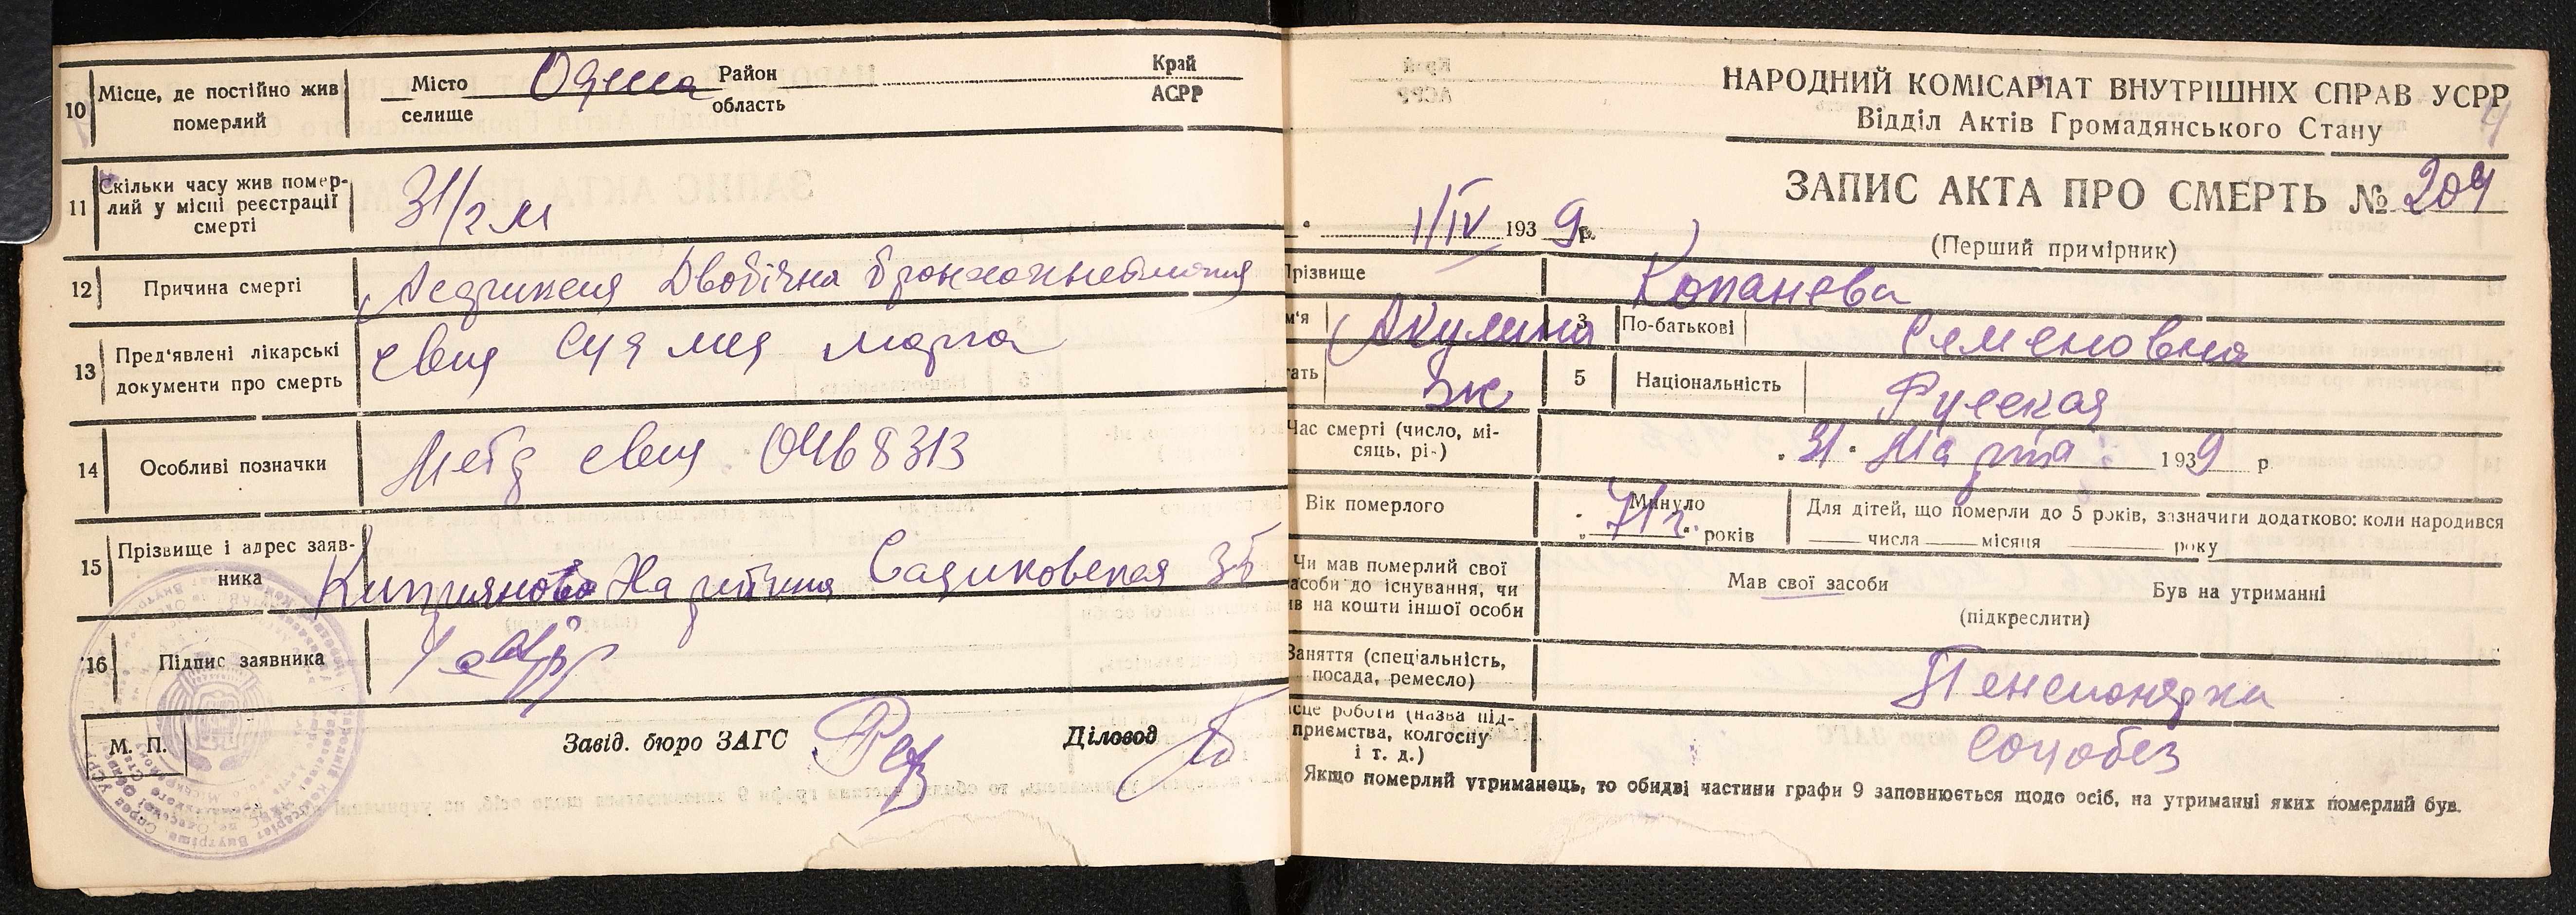 10 Місце, де постійно жив
померлий
Місто
селище
Одесса
Район
область
Край
АСРР
11 Скільки часу жив помер-
лий у місці реєстрації
смерті
3 1/2 м
12 Причина смерті
Двобічна бронхопневмония
13 Пред'явлені лікарські
документи про смерть
14 Особливі позначки
Метр свид 0468313
15 Прізвище і адрес заяв-
ника
Садиковская 35
16 Підпис заявника
М. П.
Завід. бюро ЗАГС
Діловод
НАРОДНИЙ КОМІСАРІАТ ВНУТРІШНІХ СПРАВ УСРР
Відділ Актів Громадянського Стану
ЗАПИС АКТА ПРО СМЕРТЬ № 204
(Перший примірник)
1/IV 1939 р.
Прізвище
Копанева
м'я
Акулина
3 По-батькові
Семеновна
ать
ж
5 Національність
Русская
Час смерті (число, мі-
сяць, рі-)
31 Марта 1939 р
Вік померлого
Минуло
71 г. років
Для дітей, що померли до 5 років, зазначити додатково: коли народився
числа місяця року
Чи мав померлий свої
асоби до існування, чи
ів на кошти іншої особи
Мав свої засоби
Був на утриманні
(підкреслити)
Заняття (спеціальність,
посада, ремесло)
Пенсионерка
сце роботи (назва під-
приємства, колгоспу
і т. д.)
Соцобез
Якщо померлий утриманець, то обидві частини графи 9 заповнюється щодо осіб, на утриманні яких померлий був.